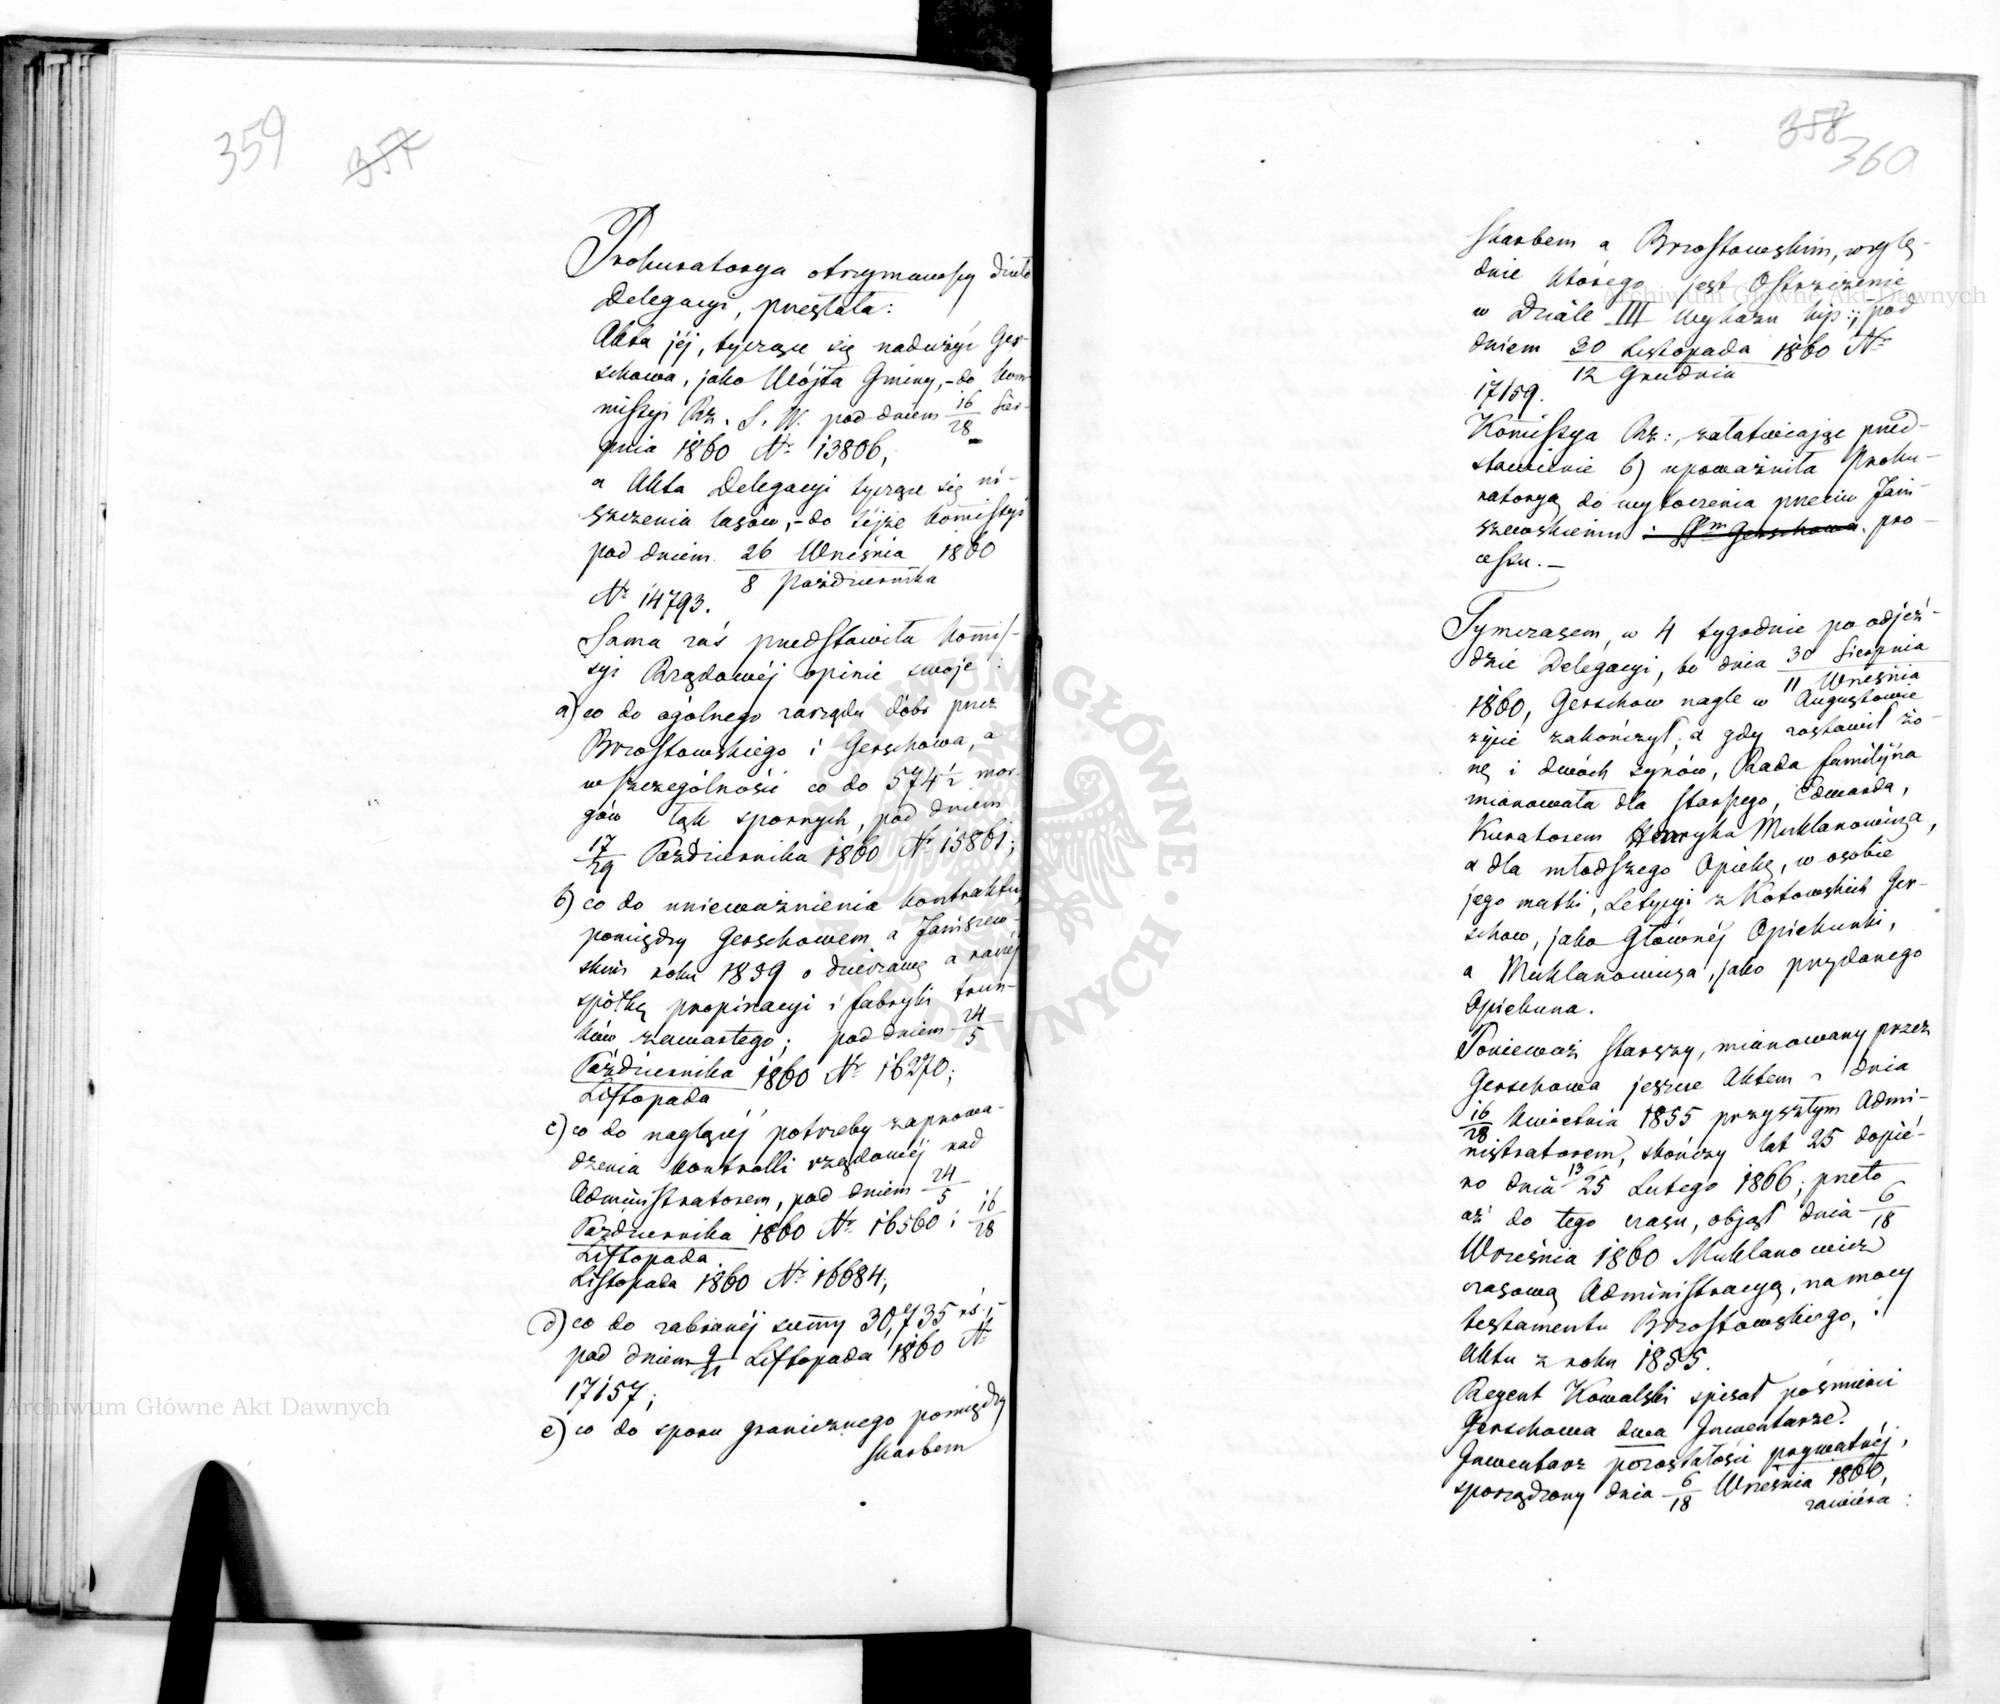 359 357
Prokuratorya otrzymawszy dzieło
Delegacyi, przesłała:
Akta jéj, tyczące się nadużyć Ger-
schowa, jako Wójta Gminy, - do Kom-
missyi Rz. S. W. pod dniem 16/28 Sier-
pnia 1860 Nr 13806,
a Akta Delegacyi tyczące się ni-
szczenia lasów, - do téjże Kommissyi
pod dniem 26 Września / 8 Października 1860
Nr 14793.
Sama zaś przedstawiła Kommis-
syi Rządowéj opinie swoje:
a) co do ogólnego zarządu dóbr przez
Brzostowskiego i Gerschowa, a
w szczególności co do 574 1/2 mor-
gów łąk spornych, pod dniem
17/29 Października 1860 Nr 15861;
b) co do unieważnienia kontraktu,
pomiędzy Gerschowem a Janiszew-
skim roku 1859 o dzierżawę a raczéj
spółkę propinacyi i fabryki trun-
ków zawartego; pod dniem 24/5
Października / Listopada 1860 Nr 16270;
c) co do naglącéj potrzeby zaprowa-
dzenia kontrolli rządowéj nad
Administratorem, pod dniem 24/5
Października / Listopada 1860 Nr 16560 i 16/28
Listopada 1860 Nr 16684;
d) co do zabranéj summy 30,735 rs., -
pod dniem 9/21 Listopada 1860 Nr
17157;
e) co do sporu granicznego pomiędzy
Skarbem
358 360
Skarbem a Brzostowskim, wzglę-
dnie którego jest Ostrzeżenie
w Dziale III Wykazu hip:; pod
dniem 30 Listopada / 12 Grudnia 1860 Nr
17159.
Kommissya Rz:, załatwiając przed-
stawienie b) upoważniła Proku-
ratoryą do wytoczenia przeciw Jani-
szewskiemu i Gerschowa pro-
cessu. —
Tymczasem, w 4 tygodnie po odjeź-
dzie Delegacyi, bo dnia 30 Sierpnia / 11 Września
1860, Gerschow nagle w Augustowie
życie zakończył; a gdy zostawił żo-
nę i dwóch synów, Rada familijna
mianowała dla starszego, Edwarda,
Kuratorem Henryka Muklanowicza,
a dla młodszego Opiekę, w osobie
jego matki, Letycyi z Kotowskich Ger-
schow, jako Głównéj Opiekunki,
a Muklanowicza, jako przydanego
Opiekuna.
Ponieważ starszy, mianowany przez
Gerschowa jeszcze Aktem z dnia
16/28 Kwietnia 1855 przyszłym Admi-
nistratorem, skończy lat 25 dopié-
ro dnia 13/25 Lutego 1866; przeto
aż do tego czasu, objął dnia 6/18
Września 1860 Muklanowicz
czasową Administracyą, na mocy
testamentu Brzostowskiego, i
Aktu z roku 1855.
Regent Kowalski spisał pośmierci
Gerschowa dwa Inwentarze.
Inwentarz pozostałości prywatnéj,
sporządzony dnia 6/18 Września 1860,
zawiéra:
Archiwum Główne Akt Dawnych
Archiwum Główne Akt Dawnych
ARCHIWUM GŁÓWNE AKT DAWNYCH